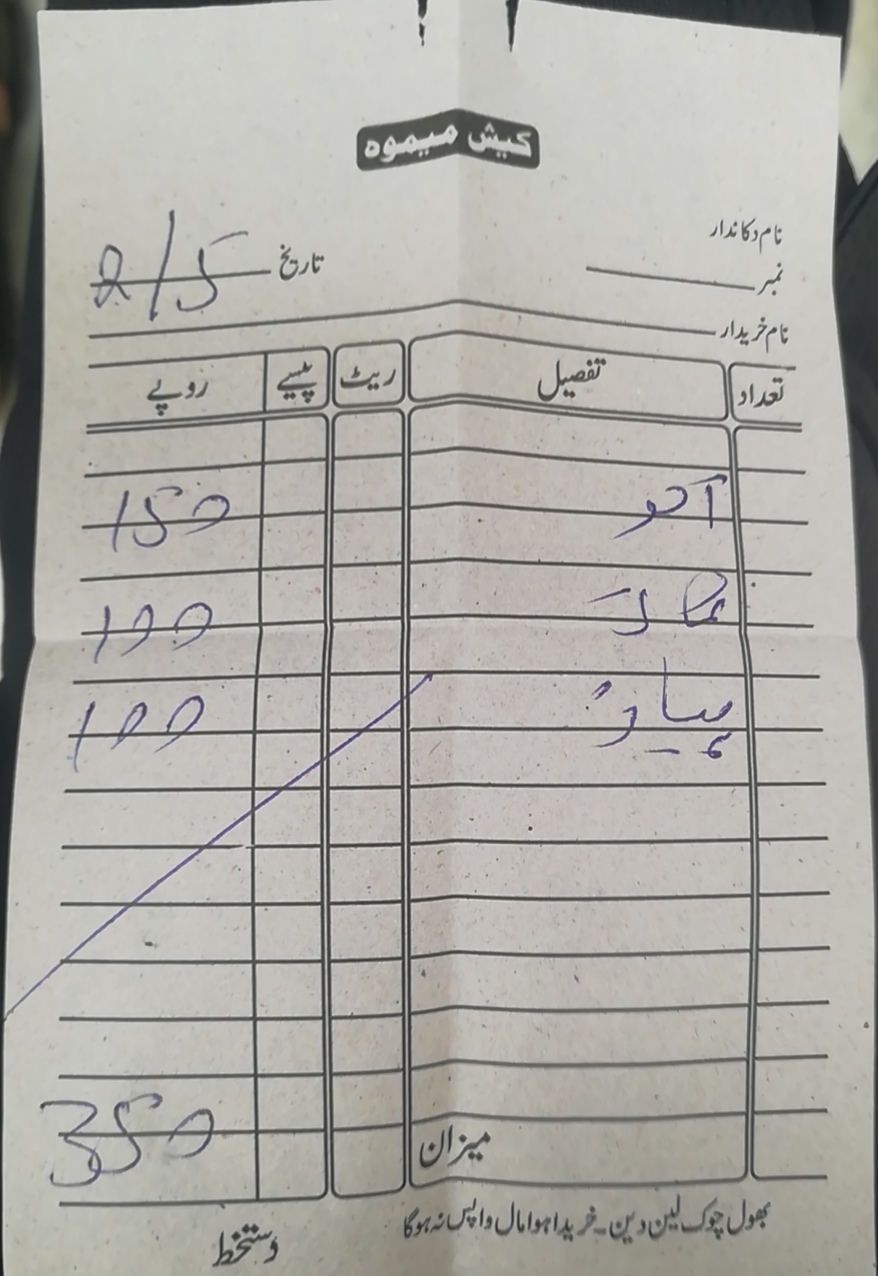 کیش میموہ
نام دکاندار
نمبر تاریخ 2/5
نام خریدار
تعداد تفصیل ریٹ پیسے روپے
آلو 150
ٹماٹر 100
پیاز 100
میزان 350
بھول چوک لین دین۔خریدا ہوا مال واپس نہ ہوگا
دستخط